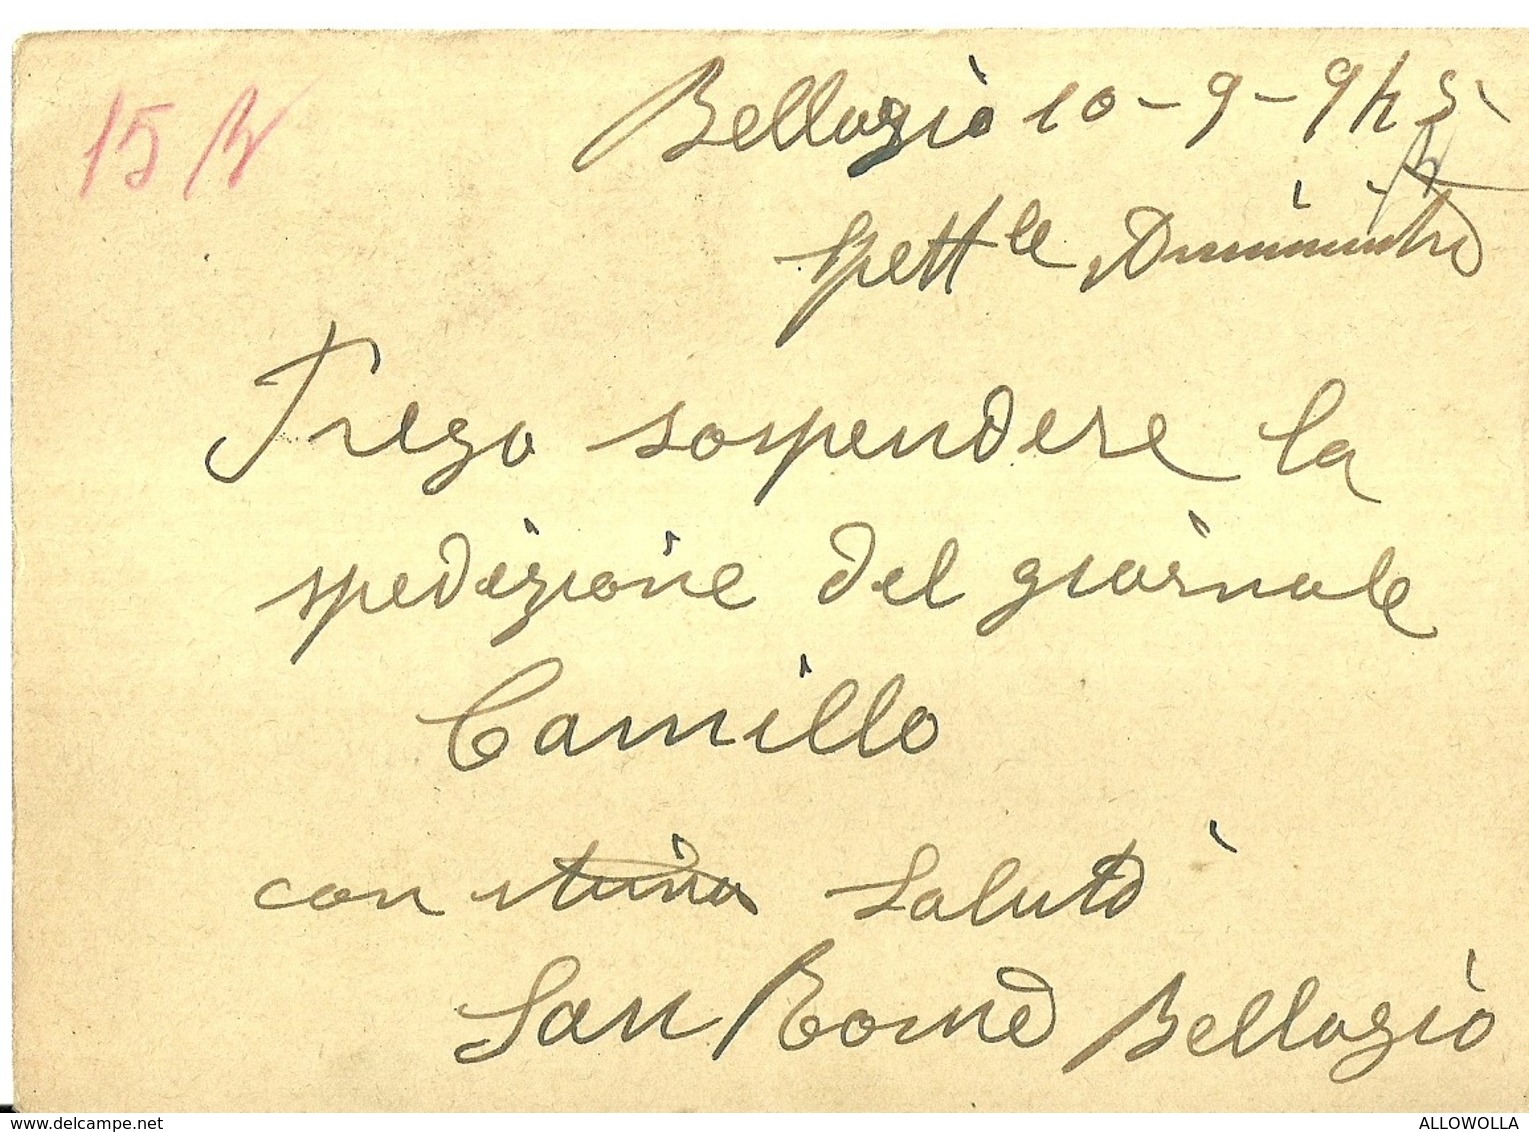 Bellagio 10-9-945
Spett.le Amministra
Prego sospendere la
spedizione del giornale
Camillo
con stima Saluto
San Romè Bellagio
ALLOWOLLA